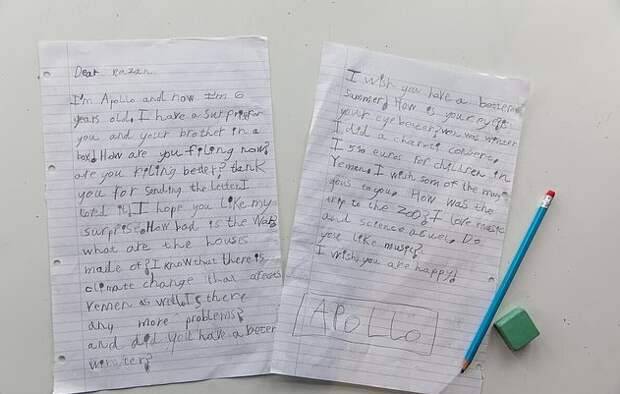 Dear Razan
I'm Apollo and now I'm 6
years old. I have a surprise for
you and your brother in a
box! How are you filing now?
are you filing better? thank
you for sending the letter. I
loved it. I hope you like my
surprise. How bad is the War?
what are the houses
maile of? I know that there is
climate change that afeats
Yemen as well. Is there
any more problems?
and did you have a beter
winter?
I wish you have a beter
summer! How is your eye is
your eye beter,
I did a charati
I 500 euros for children in
Yemen. I wish som of the muny
gous to you. How was the
trip to the zoo? I love music
and science as well. Do
you like music?
I wish you are happy!
APOLLO